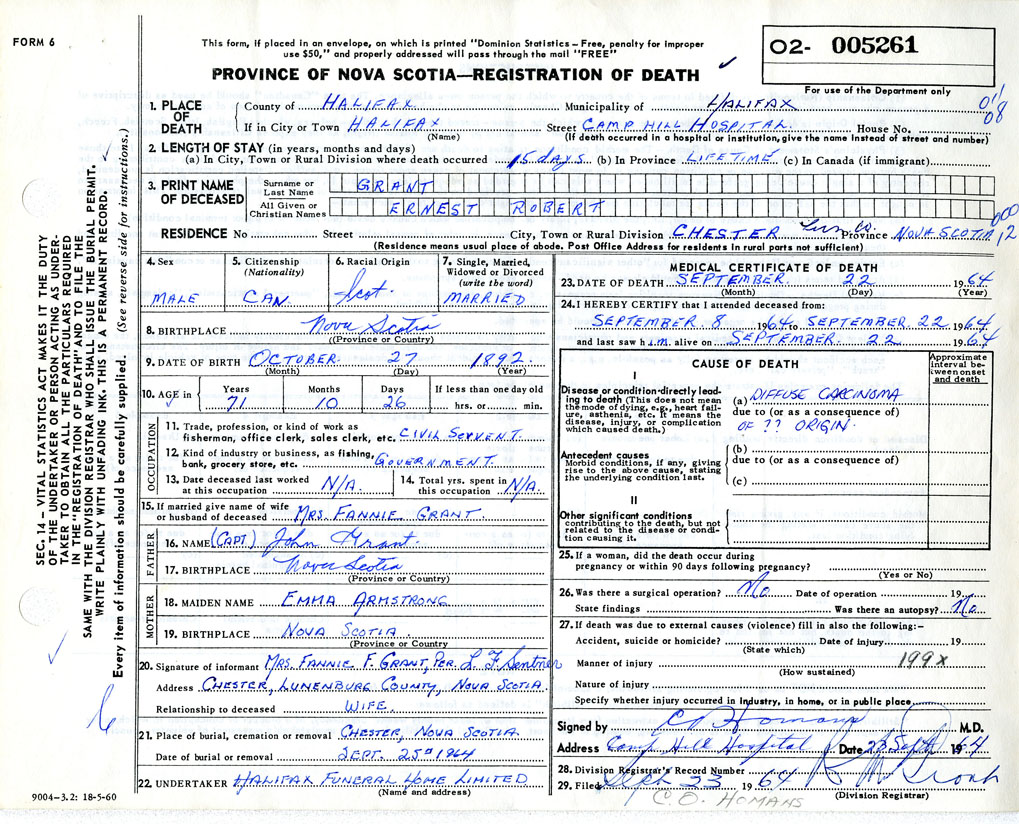 FORM 6
This form, if placed in an envelope, on which is printed "Dominion Statistics – Free, penalty for improper
use $50," and properly addressed will pass through the mail "FREE"
PROVINCE OF NOVA SCOTIA—REGISTRATION OF DEATH
02- 005261
For use of the Department only
SEC: 14—VITAL STATISTICS ACT MAKES IT THE DUTY
OF THE UNDERTAKER OR PERSON ACTING AS UNDER-
TAKER TO OBTAIN ALL THE PARTICULARS REQUIRED
IN THE "REGISTRATION OF DEATH" AND TO FILE THE
SAME WITH THE DIVISION REGISTRAR WHO SHALL ISSUE THE BURIAL PERMIT.
WRITE PLAINLY WITH UNFADING INK. THIS IS A PERMANENT RECORD.
Every item of information should be carefully supplied. (See reverse side for instructions.)
1. PLACE OF DEATH
County of HALIFAX Municipality of HALIFAX
011 08
If in City or Town HALIFAX Street CAMP HILL HOSPITAL. House No.
(Name) (If death occurred in a hospital or institution, give the name instead of street and number)
2. LENGTH OF STAY (in years, months and days)
(a) In City, Town or Rural Division where death occurred 15 days (b) In Province LIFETIME. (c) In Canada (if immigrant)
3. PRINT NAME OF DECEASED
Surname or Last Name GRANT
All Given or Christian Names ERNEST ROBERT
RESIDENCE No Street City, Town or Rural Division CHESTER Lun Co. Province NOVA SCOTIA
(Residence means usual place of abode. Post Office Address for residents in rural parts not sufficient)
4. Sex
MALE
5. Citizenship
(Nationality)
CAN.
6. Racial Origin
Scot.
7. Single, Married,
Widowed or Divorced
(write the word)
MARRIED
8. BIRTHPLACE Nova Scotia
(Province or Country)
9. DATE OF BIRTH OCTOBER 27 1892
(Month) (Day) (Year)
10. AGE in Years Months Days If less than one day old
71 10 26 hrs. or min.
OCCUPATION
11. Trade, profession, or kind of work as
fisherman, office clerk, sales clerk, etc. CIVIL SERVENT.
12. Kind of industry or business, as fishing,
bank, grocery store, etc. GOVERNMENT.
13. Date deceased last worked
at this occupation N/A.
14. Total yrs. spent in
this occupation N/A.
15. If married give name of wife
or husband of deceased MRS. FANNIE GRANT.
FATHER
16. NAME (CAPT) John Grant.
17. BIRTHPLACE Nova Scotia
(Province or Country)
MOTHER
18. MAIDEN NAME EMMA ARMSTRONG
19. BIRTHPLACE NOVA SCOTIA
(Province or Country
20. Signature of informant MRS FANNIE F. GRANT, PER. L F Sentner
Address CHESTER, LUNENBURG COUNTY, NOVA SCOTIA.
Relationship to deceased WIFE.
21. Place of burial, cremation or removal CHESTER, NOVA SCOTIA
Date of burial or removal SEPT. 25th 1964
22. UNDERTAKER HALIFAX FUNERAL HOME LIMITED
(Name and address)
9004-3.2: 18-5-60
MEDICAL CERTIFICATE OF DEATH
23. DATE OF DEATH SEPTEMBER 22 1964
(Month) (Day) (Year)
24. I HEREBY CERTIFY that I attended deceased from:
SEPTEMBER 8 1964 to SEPTEMBER 22 1964
and last saw him alive on SEPTEMBER 22 1964
CAUSE OF DEATH
Approximate
interval be-
tween onset
and death
I
Disease or condition directly lead-
ing to death (This does not mean
the mode of dying, e.g., heart fail-
ure, asthenia, etc. It means the
disease, injury, or complication
which caused death.)
(a) DIFFUSE CARCINOMA
due to (or as a consequence of)
OF ?? ORIGIN.
Antecedent causes
Morbid conditions, if any, giving
rise to the above cause, stating
the underlying condition last.
(b)
due to (or as a consequence of)
(c)
II
Other significant conditions
contributing to the death, but not
related to the disease or condi-
tion causing it.
25. If a woman, did the death occur during
pregnancy or within 90 days following pregnancy?
(Yes or No)
26. Was there a surgical operation? No Date of operation 19
State findings Was there an autopsy? No
27. If death was due to external causes (violence) fill in also the following:–
Accident, suicide or homicide? Date of injury 19
(State which)
Manner of injury 199x
(How sustained)
Nature of injury
Specify whether injury occurred in industry, in home, or in public place
Signed by C O Homans M.D.
Address Camp Hill Hospital Date 23 Sept 1964
28. Division Registrar's Record Number
29. Filed Sept 23 1964
(Division Registrar)
C. O. HOMANS